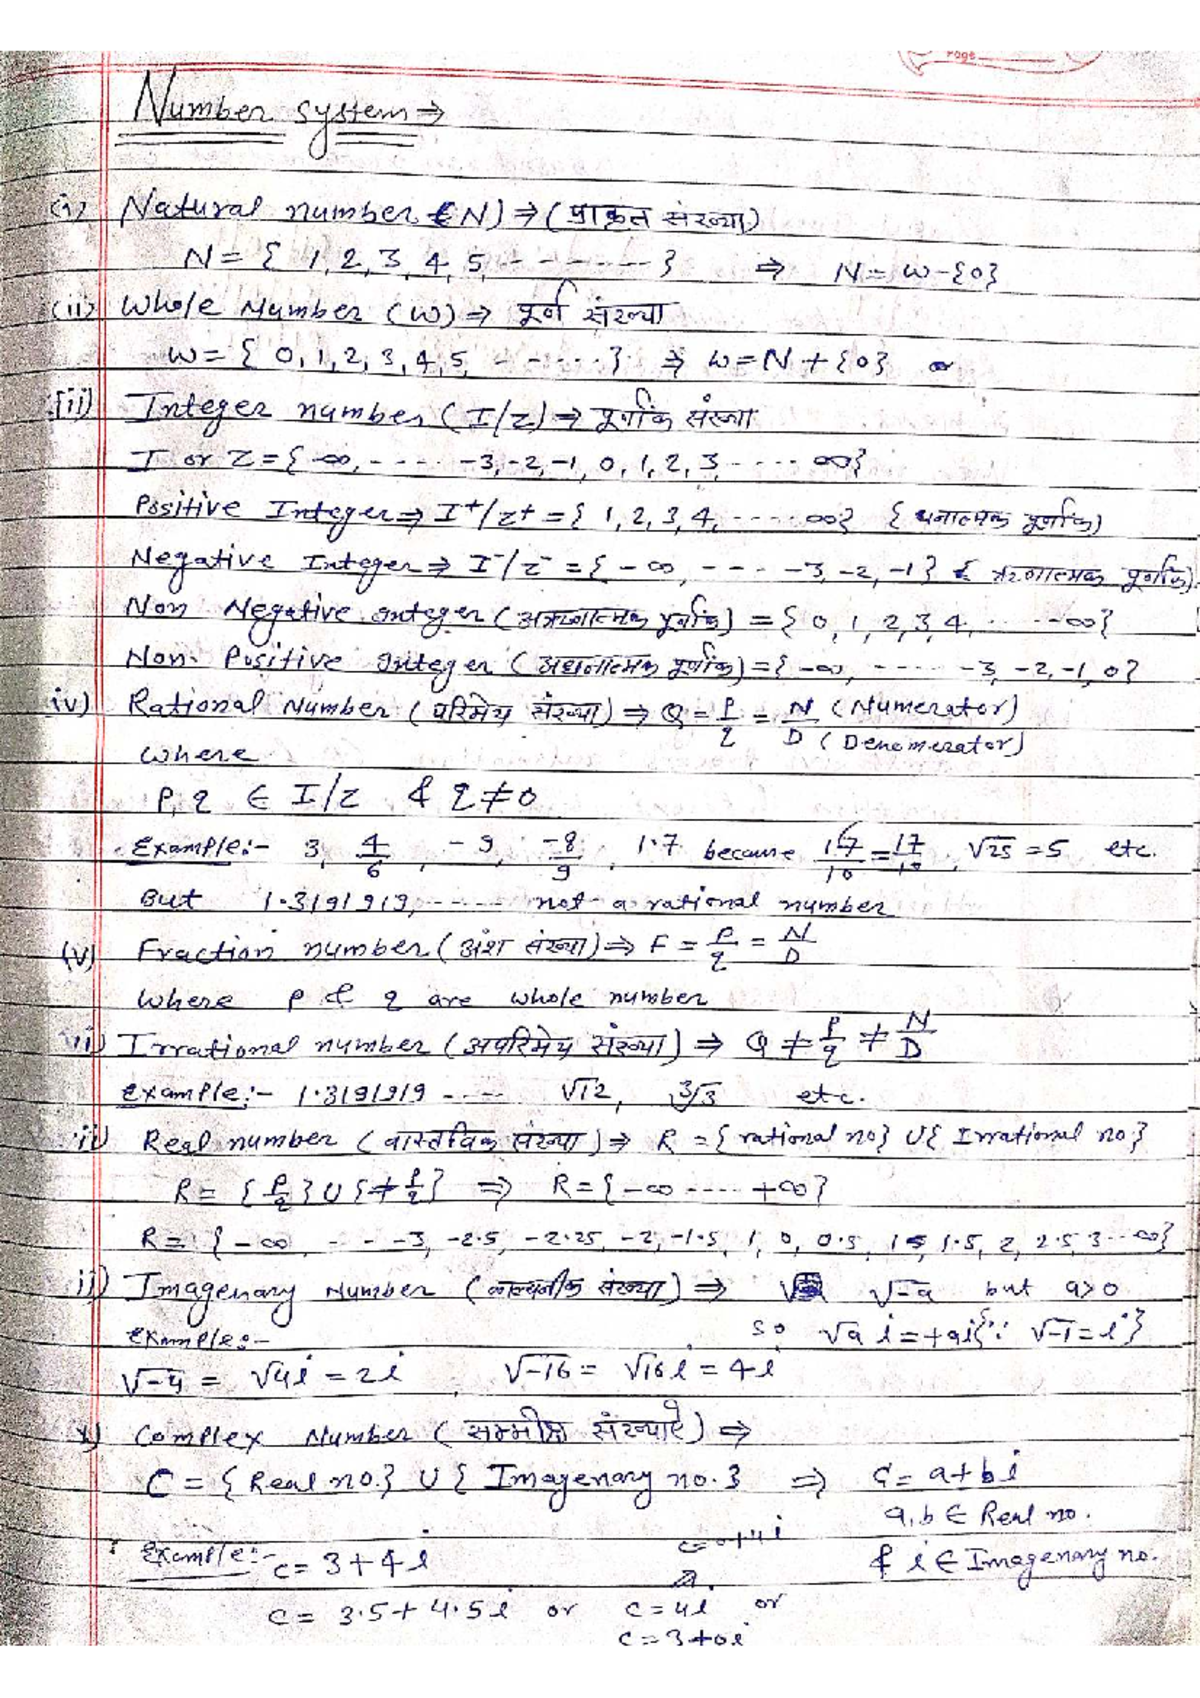 Page
Number system ⇒
(i) Natural number (N) ⇒ (प्राकृत संख्या)
N = { 1, 2, 3, 4, 5, - - - - - - - } ⇒ N = W - {0}
(ii) Whole Number (W) ⇒ पूर्ण संख्या
W = { 0, 1, 2, 3, 4, 5, - - - - - } ⇒ W = N + {0} or
Integer number (I/Z) ⇒ पूर्णांक संख्या
I or Z = { -∞, - - - - -3, -2, -1, 0, 1, 2, 3, - - - - ∞}
Positive Integer ⇒ I⁺/Z⁺ = { 1, 2, 3, 4, - - - - - ∞} { धनात्मक पूर्णांक)
Negative Integer ⇒ I⁻/Z⁻ = { -∞, - - - - -3, -2, -1 } { ऋणात्मक पूर्णांक).
Non Negative integer (अऋणात्मक पूर्णांक) = { 0, 1, 2, 3, 4, - - - - -∞}
Non- Positive integer (अधनात्मक पूर्णांक) = { -∞, - - - - - -3, -2, -1, 0}
iv) Rational Number (परिमेय संख्या) ⇒ Q = p/q = N/D (Numerator) (Denomerator)
Where
P, q ∈ I/Z & q ≠ 0
Example:- 3, 4/6, -9, -8/9, 1.7 because 17/10 = 17/10, √25 = 5 etc.
But 1.3191919, - - - - - not a rational number
(v) Fraction number (अंश संख्या) ⇒ F = p/q = N/D
Where p & q are whole number
Irrational number (अपरिमेय संख्या) ⇒ Q ≠ p/q ≠ N/D
Example:- 1.3191919 - - - - √12, ∛3 etc.
Real number (वास्तविक संख्या) ⇒ R = { rational no} ∪ { Irrational no}
R = { p/q } ∪ { ≠ p/q } ⇒ R = { -∞ - - - - - +∞ }
R = { -∞ - - - -3, -2.5, -2.25, -2, -1.5, 1, 0, 0.5, 1, 1.5, 2, 2.5, 3 - - ∞}
Imagenary Number (काल्पनीक संख्या) ⇒ √-a but a>0
Example:- so √a i = +ai {∵ √-1 = i }
√-4 = √4 i = 2i , √-16 = √16 i = 4i
Complex Number ( संख्याऐ) ⇒
C = { Real no.} ∪ { Imagenary no. } ⇒ C = a + bi
a, b ∈ Real no.
Example:- C = 3 + 4i C = 0 + 4i & i ∈ Imagenary no.
C = 3.5 + 4.5i or C = 4i or
C = 3 + 0i